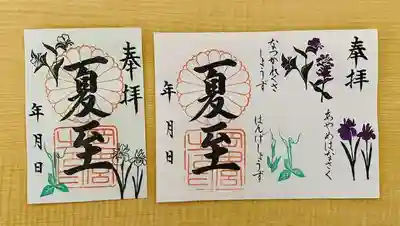 奉拝
夏至
年月日
奉拝
あやめはなさく
なつかれくさ
しょうず
はんげしょうず
夏至
年月日